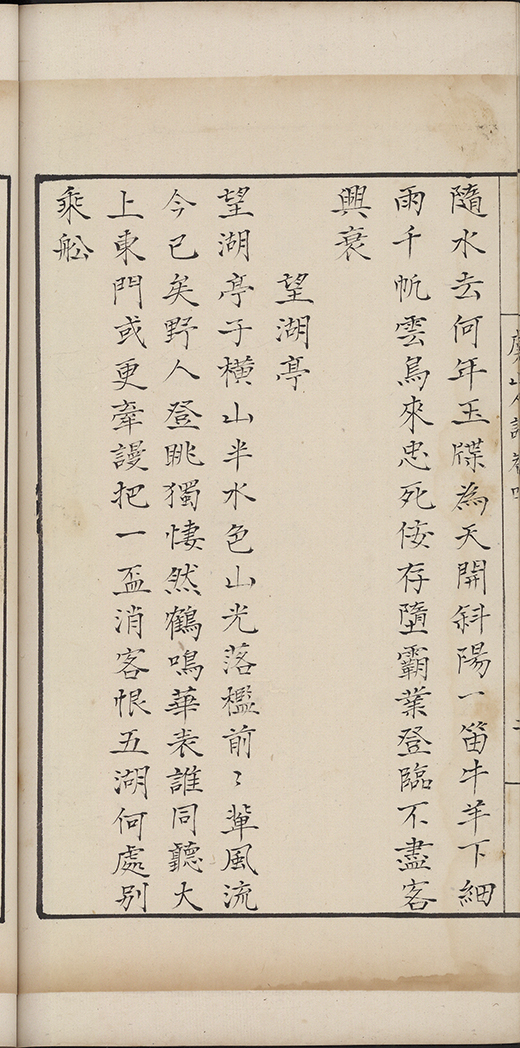 隨水去何年玉牒為天開斜陽一笛牛羊下細
雨千帆雲鳥來忠死佞存墮霸業登臨不盡客
興衰
望湖亭
望湖亭子橫山半水色山光落檻前〻輩風流
今已矣野人登眺獨悽然鶴鳴華表誰同聽大
上東門或更牽謾把一盃消客恨五湖何處別
乘船